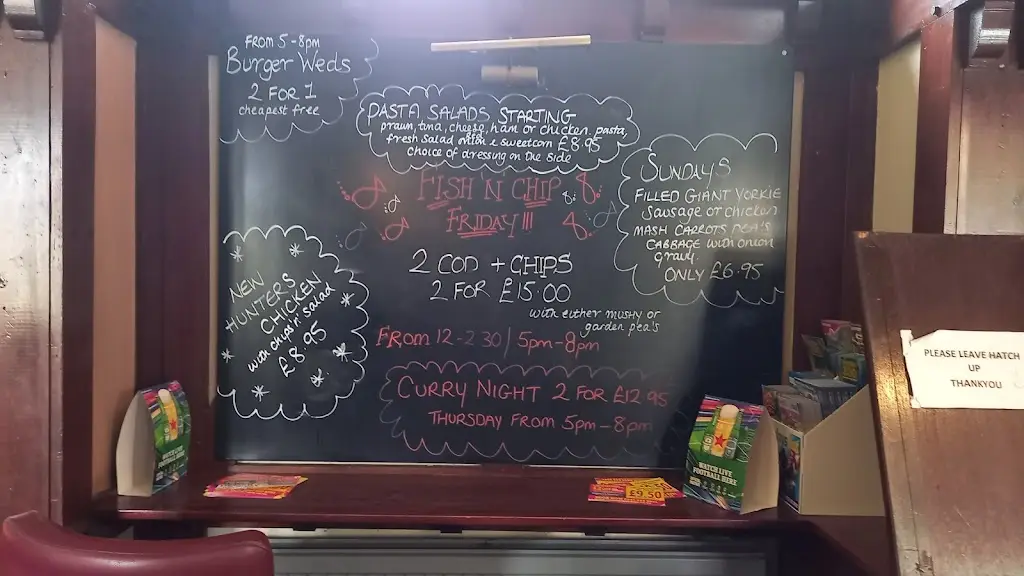 FROM 5-8pm
Burger Weds
2 FOR 1
cheapest free
PASTA SALADS STARTING
prawn, tuna, cheese, ham or chicken, pasta,
fresh salad onion & sweetcorn £8.95
choice of dressing on the side
FISH 'N CHIP
FRIDAY!!!
2 COD + CHIPS
2 FOR £15.00
with either mushy or
garden pea's
FROM 12-2 30 | 5pm-8pm
CURRY NIGHT 2 FOR £12.95
THURSDAY FROM 5pm-8pm
SUNDAYS
FILLED GIANT YORKIE
Sausage or chicken
MASH CARROTS PEA'S
CABBAGE with onion
gravy
ONLY £6.95
NEW
HUNTER'S
CHICKEN
with chips 'n' salad
£8.95
WATCH LIVE
FOOTBALL HERE
£9.50
PLEASE LEAVE HATCH
UP
THANKYOU